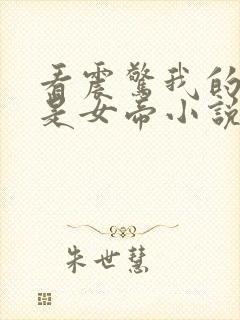 看震驚我的
是女帝小說
朱世慧